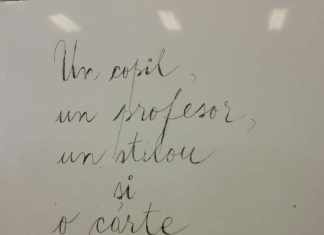 Un copil,
un profesor,
un stilou
și
o carte